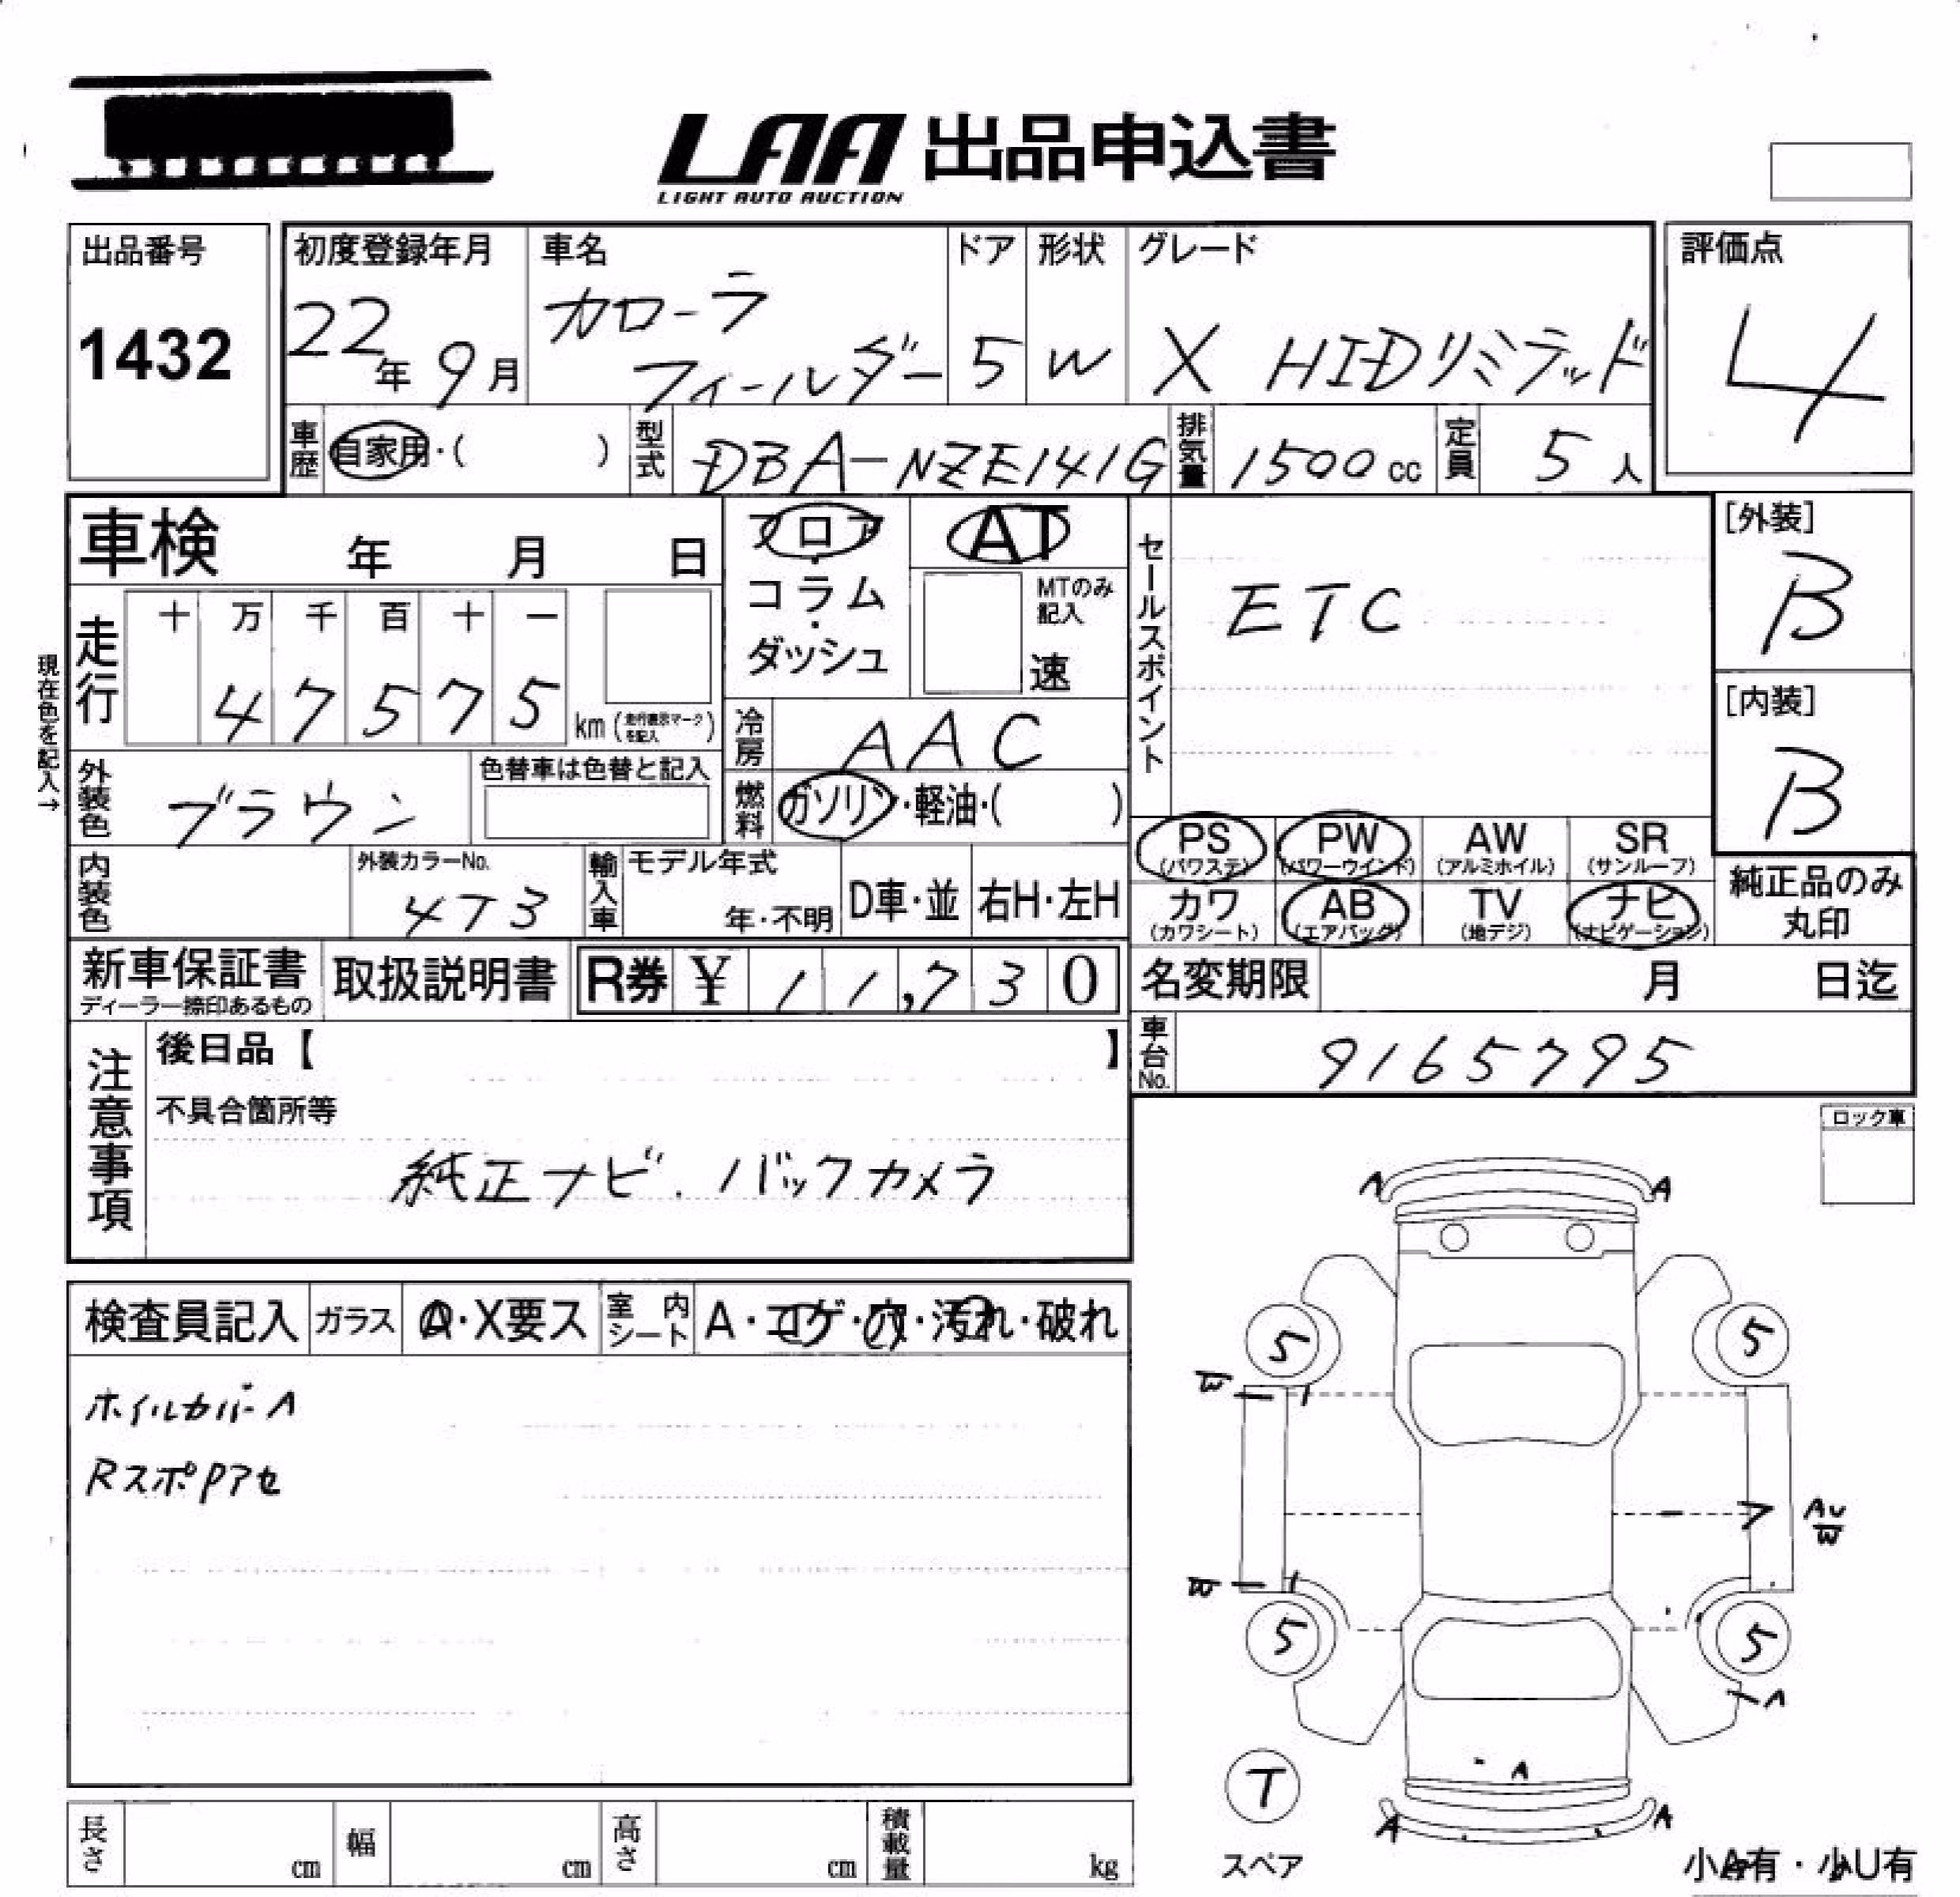 LAA 出品申込書
LIGHT AUTO AUCTION
出品番号
1432
初度登録年月
22年 9月
車名
カローラ
フィールダー
ドア
5
形状
W
グレード
X HIDリミテッド
評価点
4
車歴 自家用・( )
型式 DBA-NZE141G
排気量 1500 cc
定員 5 人
車検 年 月 日
フロア
・
コラム
・
ダッシュ
AT
MTのみ
記入
速
セールスポイント
ETC
[外装]
B
[内装]
B
現在色を記入→
走行
十 万 千 百 十 一
4 7 5 7 5
km (走行表示マークを記入)
冷房 AAC
外装色 ブラウン
色替車は色替と記入
燃料 ガソリン・軽油・( )
PS
(パワステ)
PW
(パワーウインド)
AW
(アルミホイル)
SR
(サンルーフ)
内装色
外装カラーNo.
4T3
輸入車
モデル年式
年・不明
D車・並
右H・左H
カワ
(カワシート)
AB
(エアバッグ)
TV
(地デジ)
ナビ
(ナビゲーション)
純正品のみ
丸印
新車保証書
ディーラー捺印あるもの
取扱説明書
R券 ¥ 11,730
名変期限 月 日迄
車台No. 9165795
注意事項
後日品【 】
不具合箇所等
純正ナビ. バックカメラ
ロック車
検査員記入
ガラス A・X要ス
室内シート A・コゲ・穴・汚れ・破れ
ホイルカバーA
RスポPアセ
A A
5 5
W
AU
W
W
5 5
A
A
A A
T
スペア
小A有・小U有
長さ cm
幅 cm
高さ cm
積載量 kg